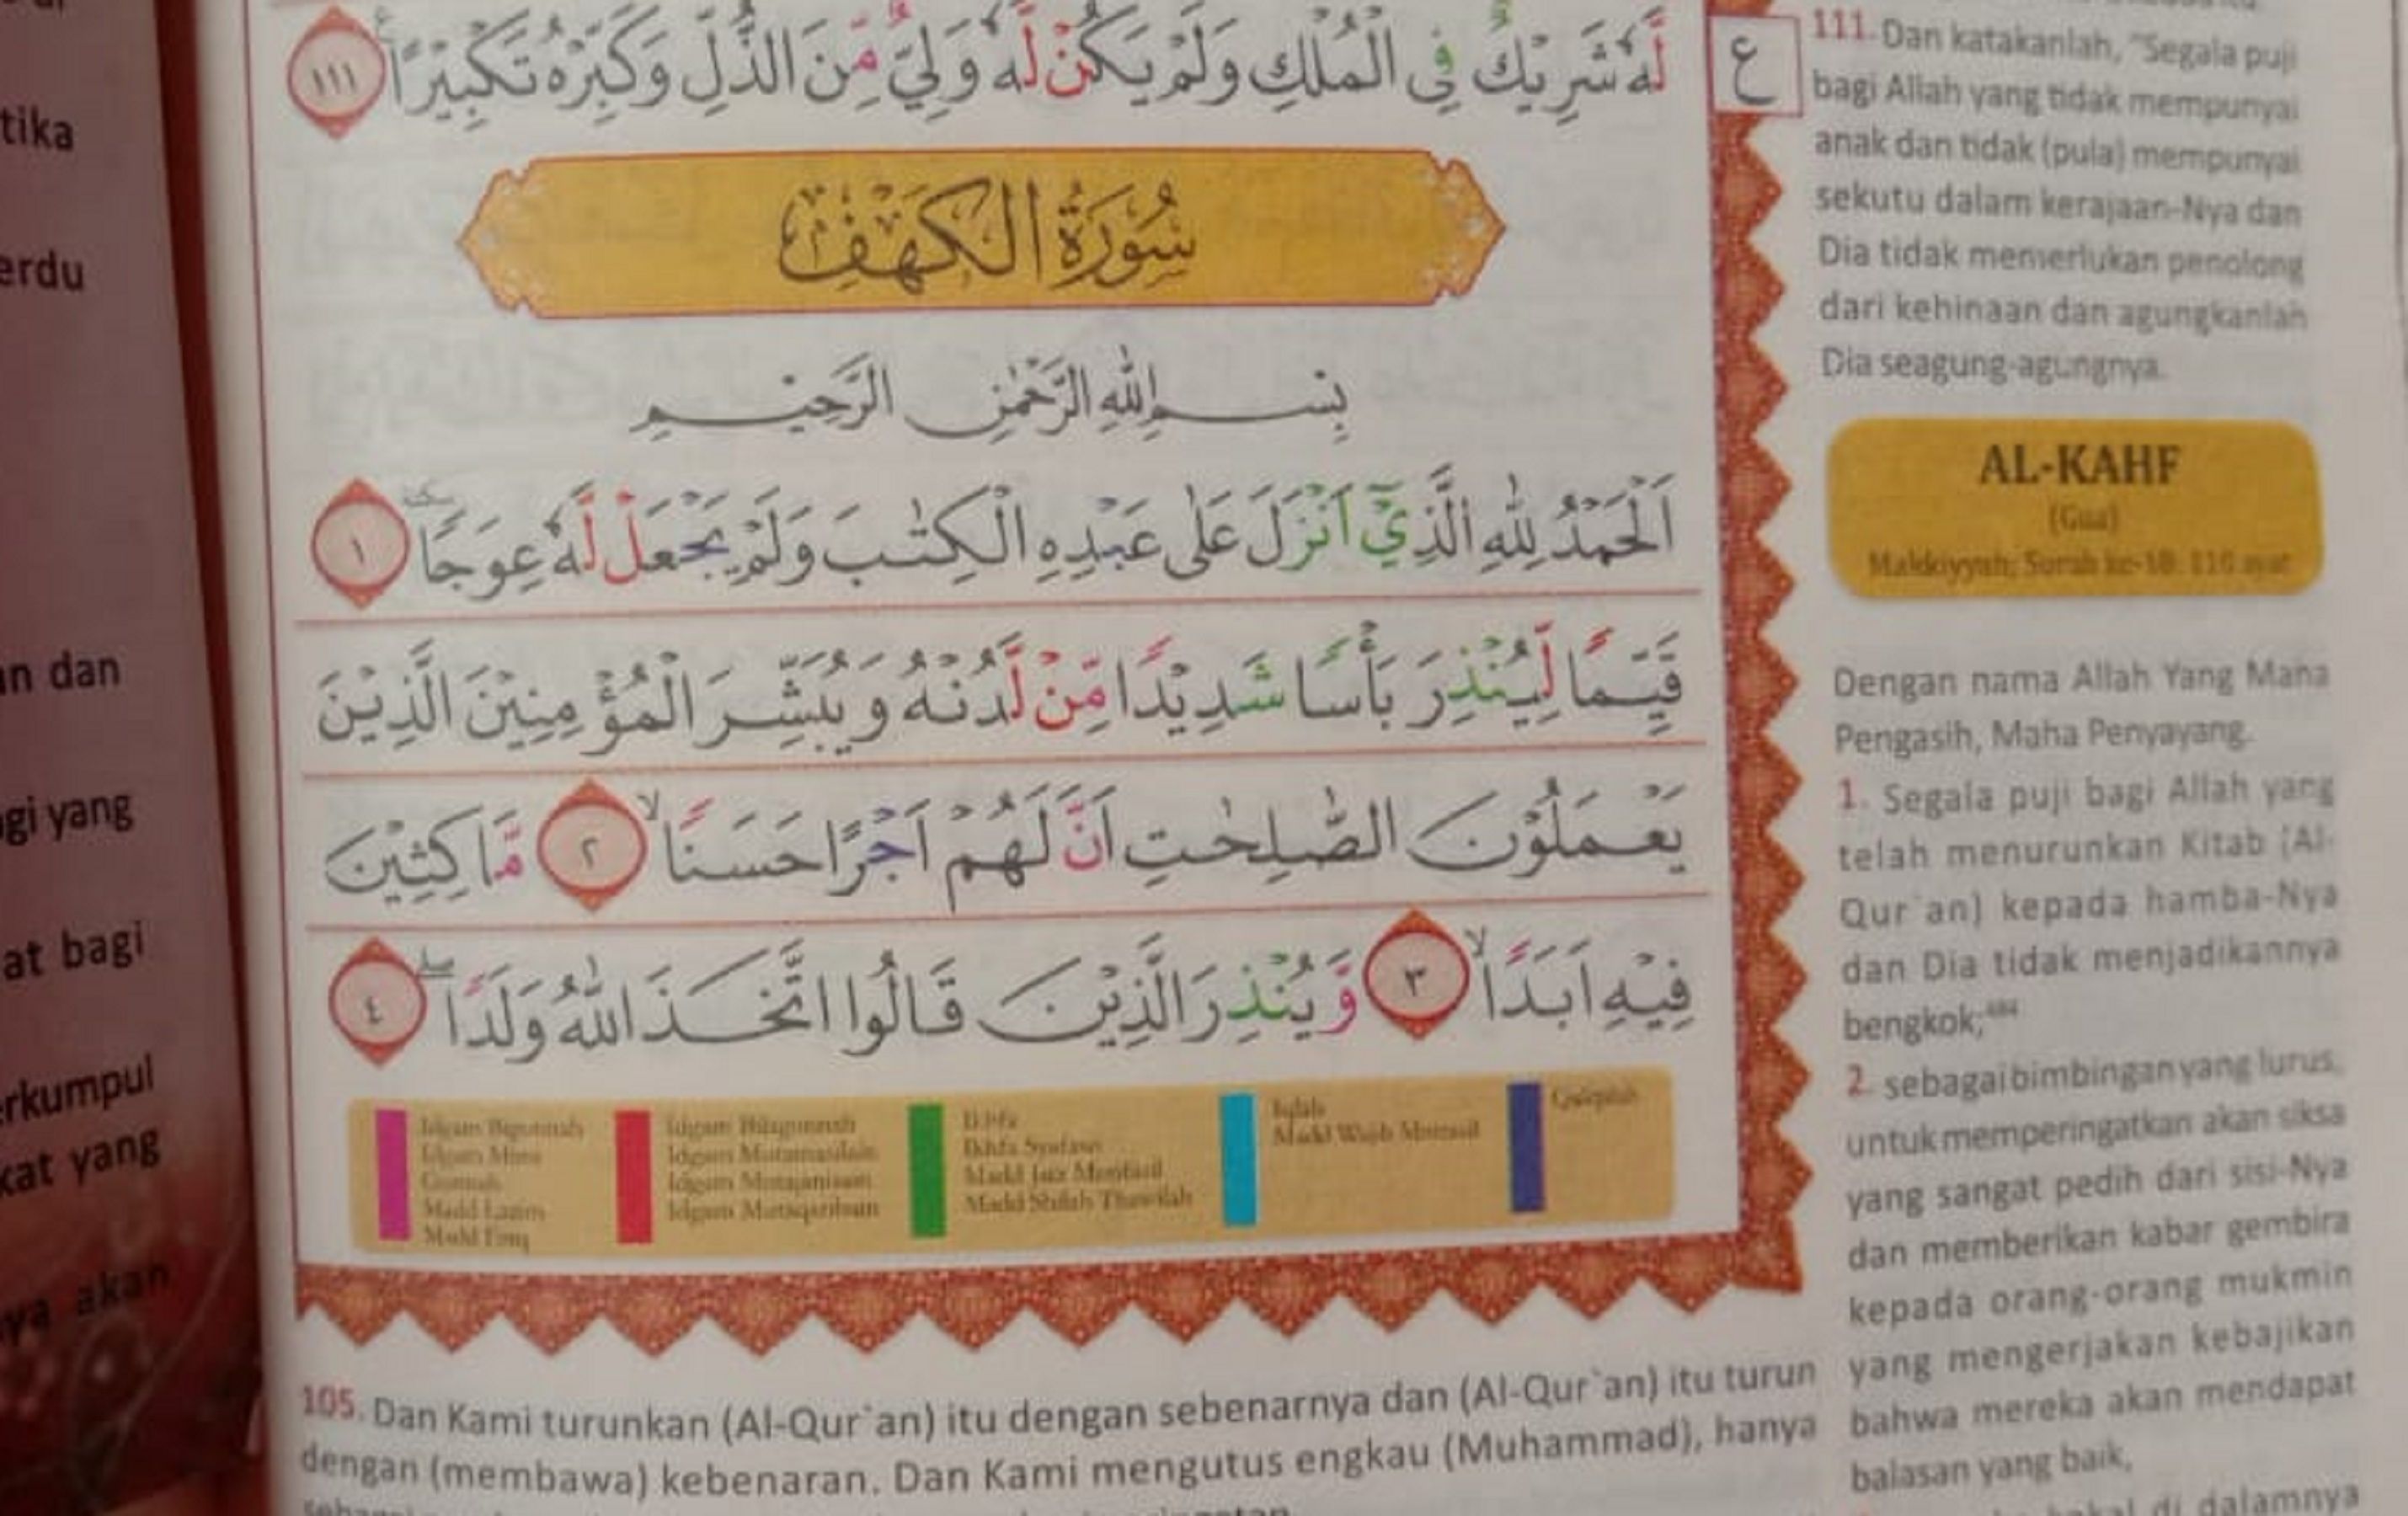 لَّهٗ شَرِيْكٌ فِى الْمُلْكِ وَلَمْ يَكُنْ لَّهٗ وَلِيٌّ مِّنَ الذُّلِّ وَكَبِّرْهُ تَكْبِيْرًا ࣖ ١١١
ع
سُوْرَةُ الْكَهْفِ
بِسْمِ اللّٰهِ الرَّحْمٰنِ الرَّحِيْمِ
اَلْحَمْدُ لِلّٰهِ الَّذِيْٓ اَنْزَلَ عَلٰى عَبْدِهِ الْكِتٰبَ وَلَمْ يَجْعَلْ لَّهٗ عِوَجًا ۜ ١
قَيِّمًا لِّيُنْذِرَ بَأْسًا شَدِيْدًا مِّنْ لَّدُنْهُ وَيُبَشِّرَ الْمُؤْمِنِيْنَ الَّذِيْنَ
يَعْمَلُوْنَ الصّٰلِحٰتِ اَنَّ لَهُمْ اَجْرًا حَسَنًاۙ ٢ مَّاكِثِيْنَ
فِيْهِ اَبَدًاۙ ٣ وَّيُنْذِرَ الَّذِيْنَ قَالُوا اتَّخَذَ اللّٰهُ وَلَدًاۖ ٤
Idgam Bigunnah
Idgam Mimi
Gunnah
Madd Lazim
Madd Farq
Idgam Bilagunnah
Idgam Mutamasilain
Idgam Mutajanisain
Idgam Mutaqaribain
Ikhfa
Ikhfa Syafawi
Madd Jaiz Munfasil
Madd Shilah Thawilah
Iqlab
Madd Wajib Muttasil
Qalqalah
111. Dan katakanlah, "Segala puji
bagi Allah yang tidak mempunyai
anak dan tidak (pula) mempunyai
sekutu dalam kerajaan-Nya dan
Dia tidak memerlukan penolong
dari kehinaan dan agungkanlah
Dia seagung-agungnya.
AL-KAHF
(Gua)
Makkiyyah; Surah ke-18: 110 ayat
Dengan nama Allah Yang Maha
Pengasih, Maha Penyayang.
1. Segala puji bagi Allah yang
telah menurunkan Kitab (Al-
Qur`an) kepada hamba-Nya
dan Dia tidak menjadikannya
bengkok;
2. sebagai bimbingan yang lurus,
untuk memperingatkan akan siksa
yang sangat pedih dari sisi-Nya
dan memberikan kabar gembira
kepada orang-orang mukmin
yang mengerjakan kebajikan
bahwa mereka akan mendapat
balasan yang baik,
di dalamnya
105. Dan Kami turunkan (Al-Qur`an) itu dengan sebenarnya dan (Al-Qur`an) itu turun
dengan (membawa) kebenaran. Dan Kami mengutus engkau (Muhammad), hanya
tika
erdu
an dan
gi yang
at bagi
erkumpul
kat yang
ya akan